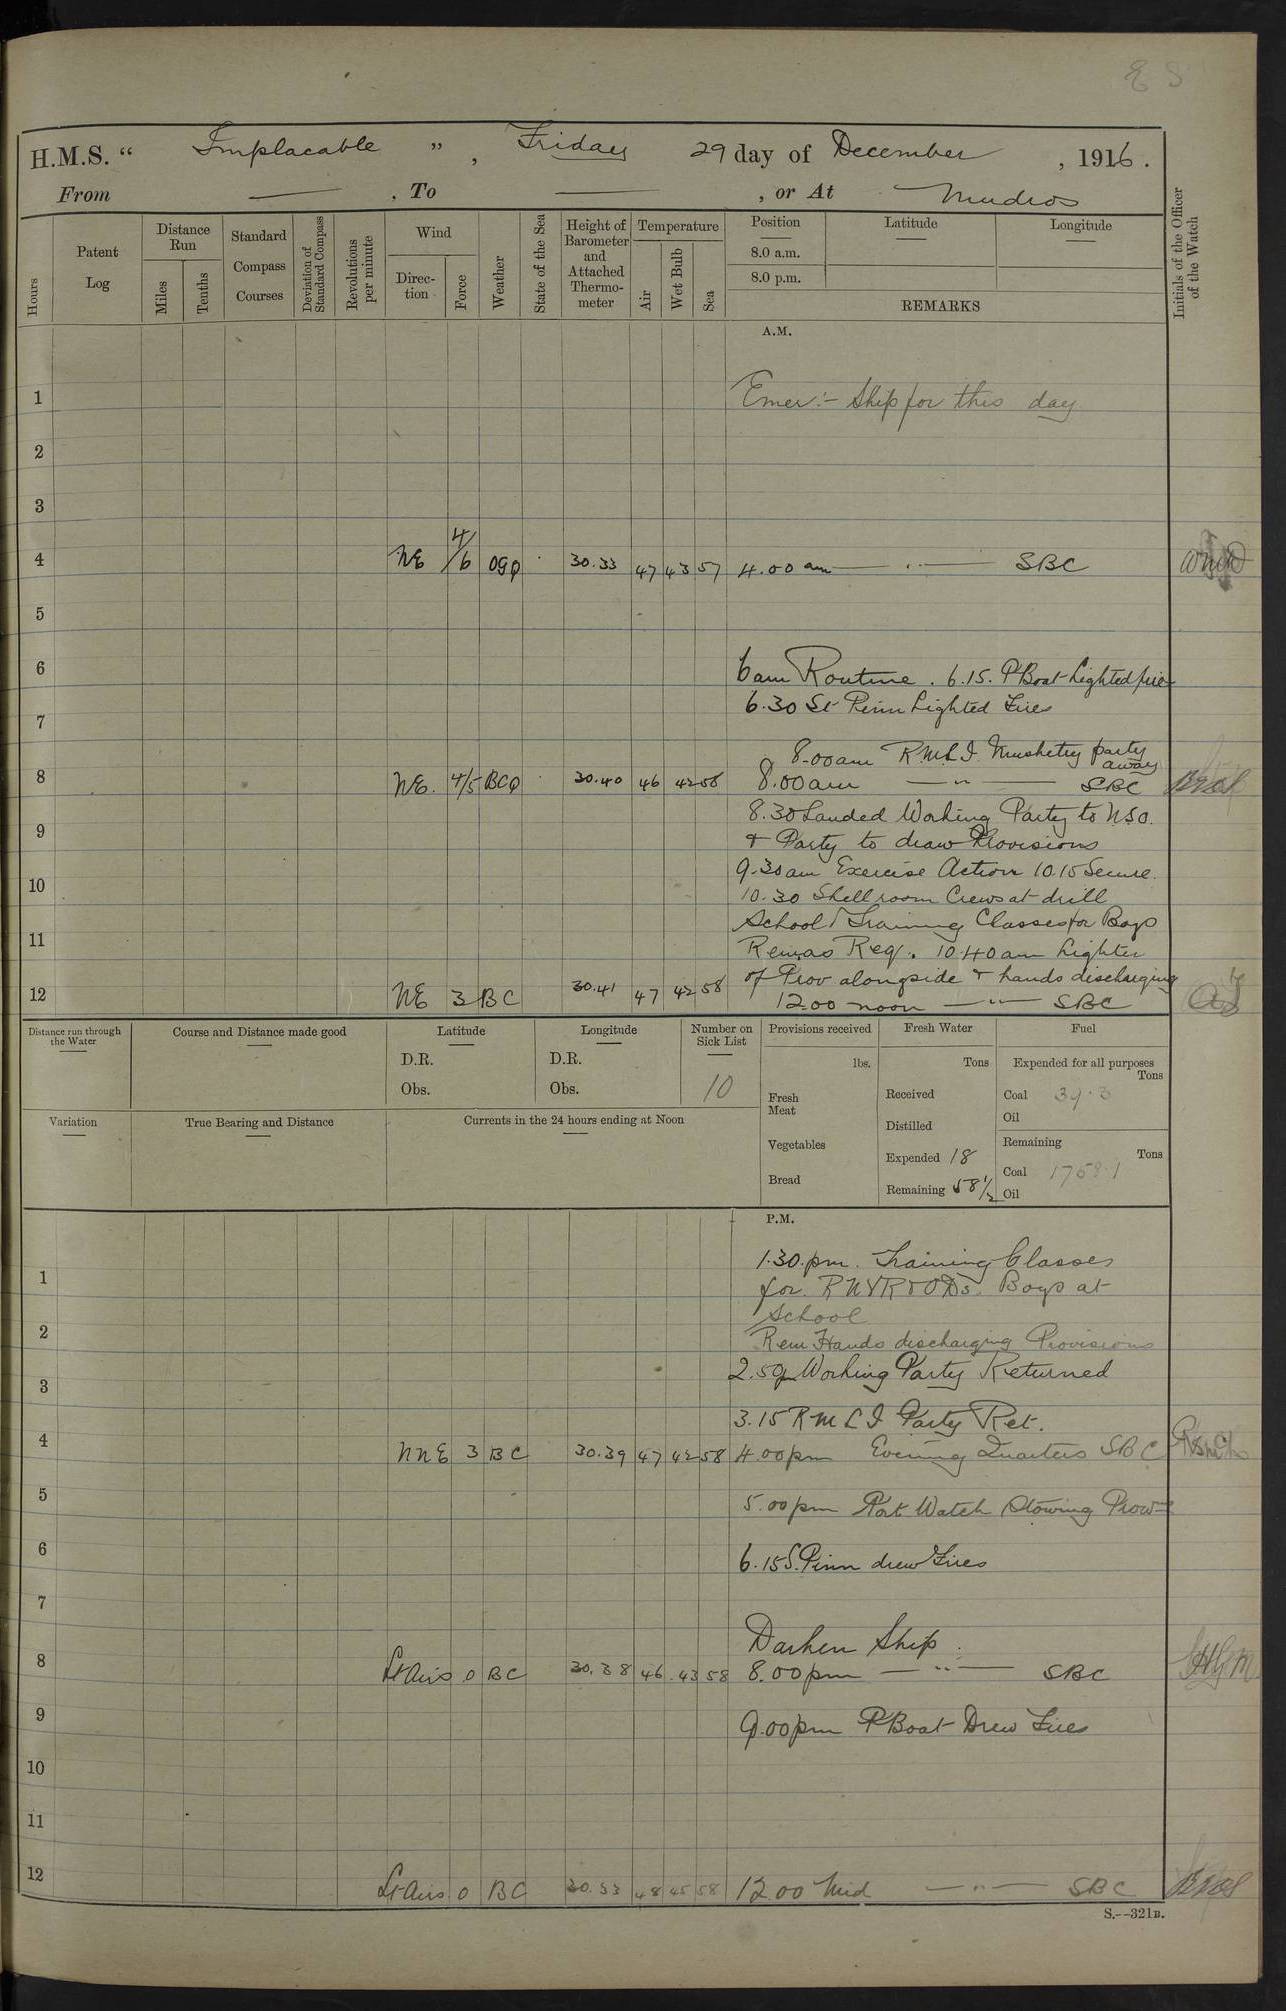 H.M.S. “ Implacable ” , Friday 29 day of December , 1916 .
From — , To — , or At Mudros
Hours
Patent Log
Distance Run
Miles
Tenths
Standard Compass Courses
Deviation of Standard Compass
Revolutions per minute
Wind
Direction
Force
Weather
State of the Sea
Height of Barometer and Attached Thermo-meter
Temperature
Air
Wet Bulb
Sea
Position
8.0 a.m.
8.0 p.m.
Latitude
Longitude
REMARKS
Initials of the Officer of the Watch
A.M.
1 Emer:- Ship for this day
2
3
4 NE 4/6 OGQ 30.33 47 43 57 4.00 am — " — SBC
5
6 6 am Routine . 6.15. PBoat Lighted fire
6.30 St Pinn Lighted Fires
7
8.00am R.M.L.I. Musketry party away
8 NE. 4/5 BCQ 30.40 46 42 58 8.00am — " — SBC
8.30 Landed Working Party to N.S.O.
9 & Party to draw Provisions
9.30am Exercise Action 10.15 Secure.
10 10.30 Shell room Crews at drill
School & Training Classes for Boys
11 Rem as Req. 10.40am Lighter
of Prov alongside & hands discharging
12 NE 3 BC 30.41 47 42 58 12.00 noon — " — SBC
Distance run through the Water
Course and Distance made good
Latitude
D.R.
Obs.
Longitude
D.R.
Obs.
Number on Sick List
10
Provisions received
lbs.
Fresh Meat
Vegetables
Bread
Fresh Water
Tons
Received
Distilled
Expended 18
Remaining 58½
Fuel
Expended for all purposes
Tons
Coal 39.3
Oil
Remaining
Tons
Coal 1758.1
Oil
Variation
True Bearing and Distance
Currents in the 24 hours ending at Noon
P.M.
1.30.pm. Training Classes
1 for. RNVR & ODs. Boys at
School
2 Rem Hands discharging Provisions
2.50pm Working Party Returned
3
3.15 R M L I Party Ret.
4 NNE 3 BC 30.39 47 42 58 4.00pm Evening Quarters SBC
5 5.00pm Port Watch Stowing Prov
6 6.15 S.Pinn drew Fires
7
Darken Ship.
8 Lt Airs 0 BC 30.38 46 43 58 8.00pm — " — SBC
9 9.00pm PBoat Drew Fires
10
11
12 Lt Airs 0 BC 30.33 48 45 58 12.00 Mid — " — SBC
S.--321B.